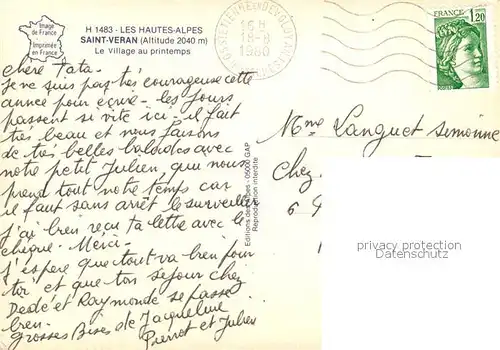 Image
de France
Imprimée
en France
H 1483 - LES HAUTES-ALPES
SAINT-VERAN (Altitude 2040 m)
Le Village au printemps
16 H
18-8
1980
FRANCE
1,20
chère Tata.
Je ne suis pas très courageuse cette
année pour écrire. les jours
passent si vite ici, il fait
très beau et nous faisons
de très belles balades avec
notre petit Julien, que nous
prend tout notre temps car
il faut sans arrêt le surveiller
J'ai bien reçu ta lettre avec le
chèque. Merci.
J'espère que tout va bien pour
toi et que ton séjour chez
Dédé et Raymonde se passe
bien.
Grosses Bises de Jacqueline
Pierrot et Julien
Editions des Alpes - 05000 GAP
Reproduction interdite
Mme Languet Simonne
Chez
6
privacy protection
Datenschutz